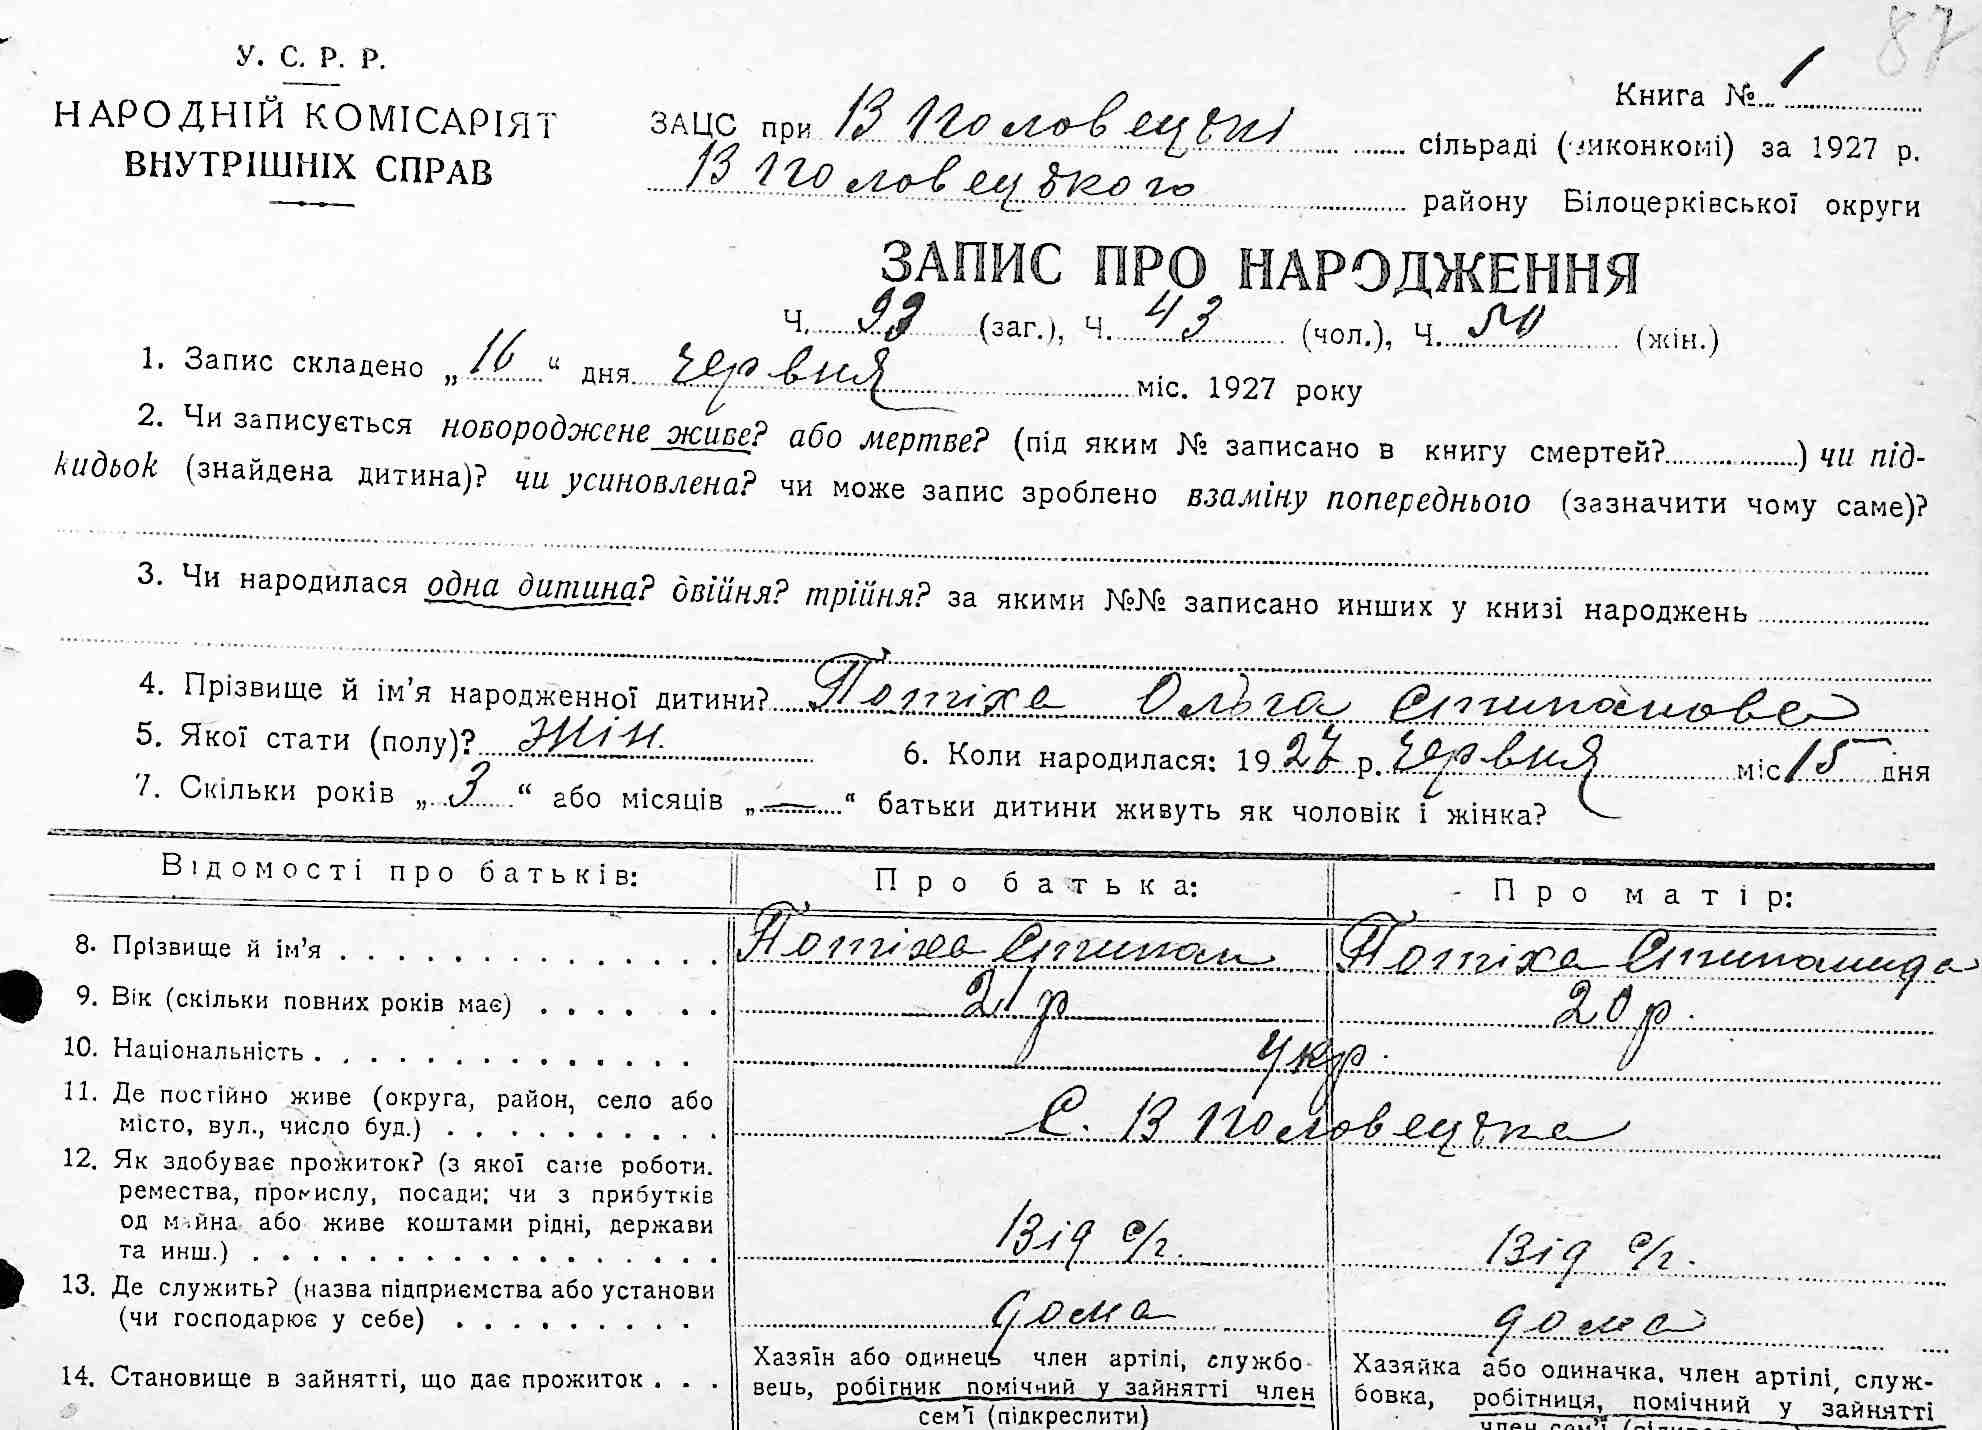 87
У. С. Р. Р.
НАРОДНІЙ КОМІСАРІЯТ
ВНУТРІШНІХ СПРАВ
Книга № 1
ЗАЦС при В Половецькі сільраді (виконкомі) за 1927 р.
В Половецького району Білоцерківської округи
ЗАПИС ПРО НАРОДЖЕННЯ
Ч. 93 (заг.), Ч. 43 (чол.), Ч. 50 (жін.)
1. Запис складено „ 16 “ дня червня міс. 1927 року
2. Чи записується новороджене живе? або мертве? (під яким № записано в книгу смертей? ) чи під-
кидьок (знайдена дитина)? чи усиновлена? чи може запис зроблено взаміну попереднього (зазначити чому саме)?
3. Чи народилася одна дитина? двійня? трійня? за якими №№ записано инших у книзі народжень
4. Прізвище й ім’я народженної дитини? Потіха Ольга Степанова
5. Якої стати (полу)? жін. 6. Коли народилася: 1927 р. червня міс 15 дня
7. Скільки років „ 3 “ або місяців „ — “ батьки дитини живуть як чоловік і жінка?
Відомості про батьків: Про батька: Про матір:
8. Прізвище й ім’я Потіха Степан Потіха Степанида
9. Вік (скільки повних років має) 21 р 20 р.
10. Національність укр.
11. Де постійно живе (округа, район, село або
місто, вул., число буд.) С. В Половецька
12. Як здобуває прожиток? (з якої саме роботи.
ремества, промислу, посади; чи з прибутків
од майна або живе коштами рідні, держави
та инш.) Від с/г. Від с/г.
13. Де служить? (назва підприємства або установи
(чи господарює у себе) дома дома
14. Становище в зайнятті, що дає прожиток . . . Хазяїн або одинець член артілі, службо-
вець, робітник помічний у зайнятті член
сем’ї (підкреслити)
Хазяйка або одиначка, член артілі, служ-
бовка, робітниця, помічний у зайнятті